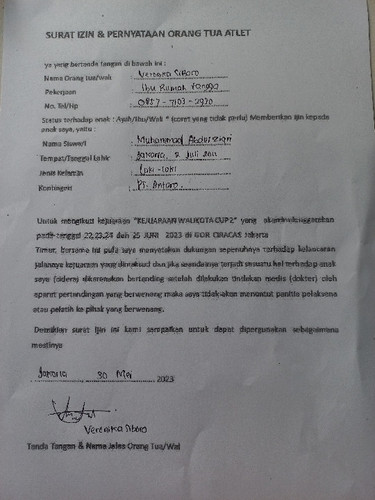 SURAT IZIN & PERNYATAAN ORANG TUA ATLET
ya yang bertanda tangan di bawah ini :
Nama Orang tua/wali : Veronika Siboro
Pekerjaan : Ibu Rumah Tangga
No. Tel/Hp : 0857-7103-2920
Status terhadap anak : Ayah/Ibu/Wali * (coret yang tidak perlu) Memberikan ijin kepada
anak saya, yaitu :
Nama Siswa/i : Muhammad
Tempat/Tanggal Lahir : Jakarta, 2 Juli 2011
Jenis Kelamin : Laki-laki
Kontingen : PS.
Untuk mengikuti kejuaraan "KEJUARAAN WALIKOTA CUP 2" yang akan diselenggarakan
pada tanggal 22,23,24 dan 25 JUNI 2023 di GOR CIRACAS Jakarta
Timur, bersama ini pula saya menyatakan dukungan sepenuhnya terhadap kelancaran
jalannya kejuaraan yang dimaksud dan jika seandainya terjadi sesuatu hal terhadap anak
saya (cidera) dikarenakan bertanding setelah dilakukan tindakan medis (dokter) oleh
aparat pertandingan yang berwenang maka saya tidak akan menuntut panitia pelaksana
atau pelatih ke pihak yang berwenang.
Demikian surat ijin ini kami sampaikan untuk dapat dipergunakan sebagaimana
mestinya
Jakarta 30 Mei 2023
Veronika Siboro
Tanda Tangan & Nama Jelas Orang Tua/Wali